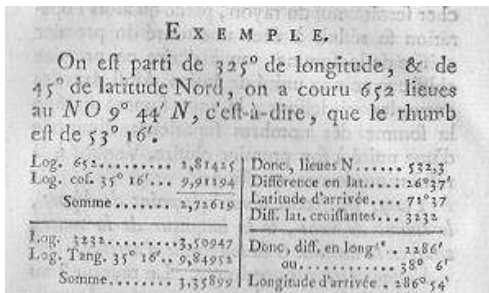 EXEMPLE.
On eſt parti de 325° de longitude, & de
45° de latitude Nord, on a couru 652 lieues
au NO 9° 44' N, c'eſt-à-dire, que le rhumb
eſt de 53° 16'.
Log. 652......... 2,81425
Log. coſ. 35° 16'... 9,91194
Somme....... 2,72619
Log. 3232.........3,50947
Log. Tang. 35° 16'.. 9,84952
Somme.... 3,35899
Donc, lieues N...... 532,3
Différence en lat..... 26°37'
Latitude d'arrivée.... 71°37
Diff. lat. croiſſantes... 3232
Donc, diff. en longᵈᵉ.. 2286'
ou........... 38° 6'
Longitude d'arrivée . 286° 54'